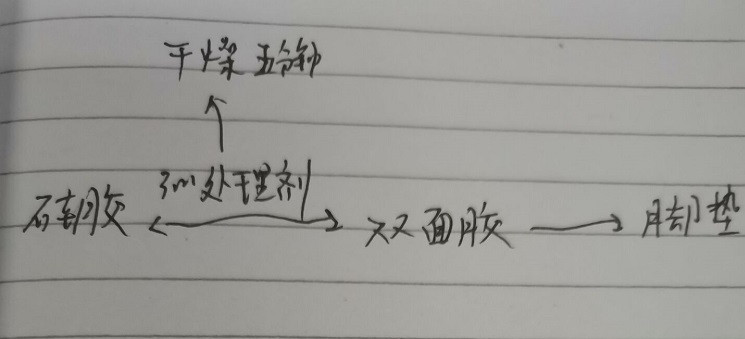 干燥五分钟
3m处理剂
硅胶 双面胶 脚垫